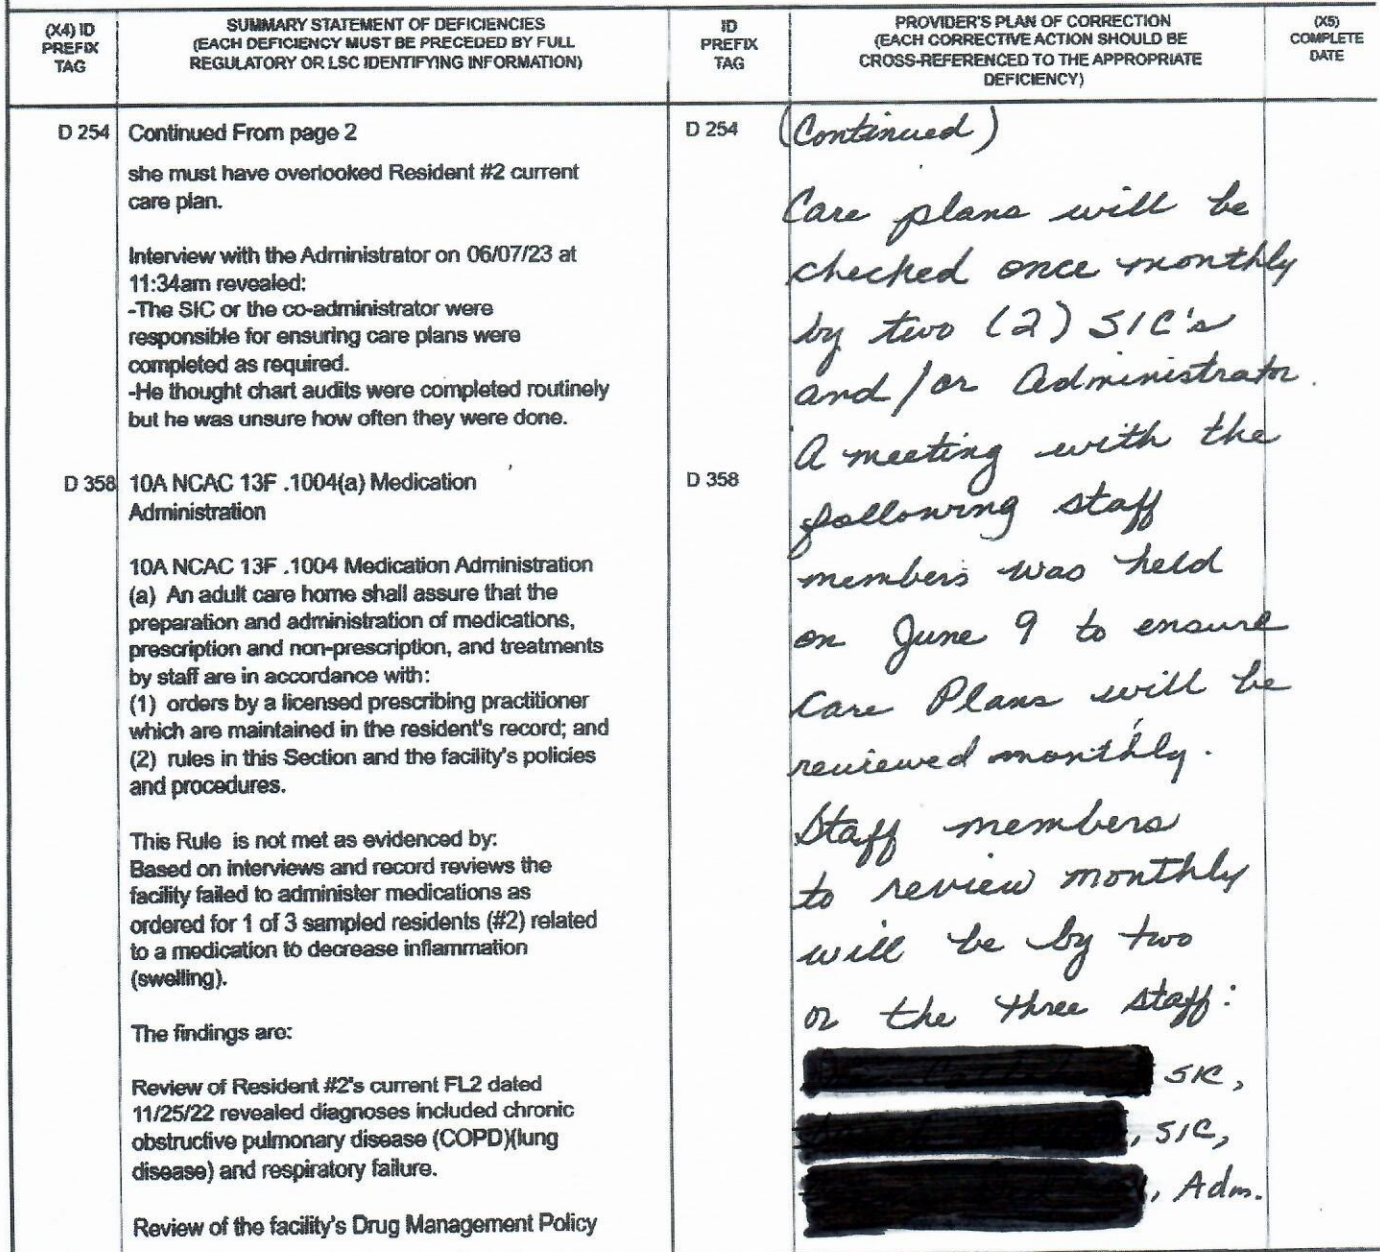 (X4) ID
PREFIX
TAG
SUMMARY STATEMENT OF DEFICIENCIES
(EACH DEFICIENCY MUST BE PRECEDED BY FULL
REGULATORY OR LSC IDENTIFYING INFORMATION)
ID
PREFIX
TAG
PROVIDER'S PLAN OF CORRECTION
(EACH CORRECTIVE ACTION SHOULD BE
CROSS-REFERENCED TO THE APPROPRIATE
DEFICIENCY)
(X5)
COMPLETE
DATE
D 254
Continued From page 2
she must have overlooked Resident #2 current
care plan.
Interview with the Administrator on 06/07/23 at
11:34am revealed:
-The SIC or the co-administrator were
responsible for ensuring care plans were
completed as required.
-He thought chart audits were completed routinely
but he was unsure how often they were done.
D 358
10A NCAC 13F .1004(a) Medication
Administration
10A NCAC 13F .1004 Medication Administration
(a) An adult care home shall assure that the
preparation and administration of medications,
prescription and non-prescription, and treatments
by staff are in accordance with:
(1) orders by a licensed prescribing practitioner
which are maintained in the resident's record; and
(2) rules in this Section and the facility's policies
and procedures.
This Rule is not met as evidenced by:
Based on interviews and record reviews the
facility failed to administer medications as
ordered for 1 of 3 sampled residents (#2) related
to a medication to decrease inflammation
(swelling).
The findings are:
Review of Resident #2's current FL2 dated
11/25/22 revealed diagnoses included chronic
obstructive pulmonary disease (COPD)(lung
disease) and respiratory failure.
Review of the facility's Drug Management Policy
D 254
D 358
(Continued)
Care plans will be
checked once monthly
by two (2) SIC's
and/or Administrator.
A meeting with the
following staff
members was held
on June 9 to ensure
Care Plans will be
reviewed monthly.
Staff members
to review monthly
will be by two
or the three staff:
SIC,
, SIC,
, Adm.